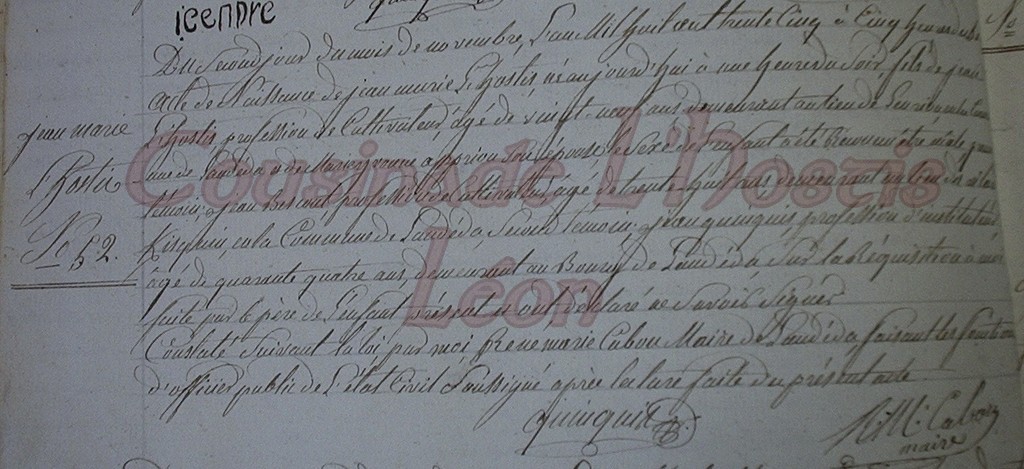 icendre
Du second jour du mois de novembre, L'an Mil huit cent trente Cinq à Cinq heures du
acte de Naissance de jean marie L'hostis, né aujourd'hui à une heure du Soir, fils de jean
L'hostis profession de Cultivateur, âgé de vingt neuf ans demeurant au lieu de
de Landéda et de appriou Son épouse, le Sexe de l'enfant a été Reconnu être mâle
témoin, jean profession de age de trente huit ans demeurant au lieu de
en la Commune de Landéda, Second témoin, jean quinquis, profession d'instituteur
âgé de quarante quatre ans, demeurant au Bourg de Landéda Sur la Réquisition à moi
faite par le père de L'enfant présent et ont déclaré ne Savoir Signer
Constaté Suivant la loi par moi, Rene marie Cabon Maire de Landéda faisant les fonctions
d'officier public de L'état Civil Soussigné après lecture faite du présent acte
quinquis
R: M: Cabon
maire
jean marie
L'hostis
No 52.
No
Cousins de L'Hostis
Léon